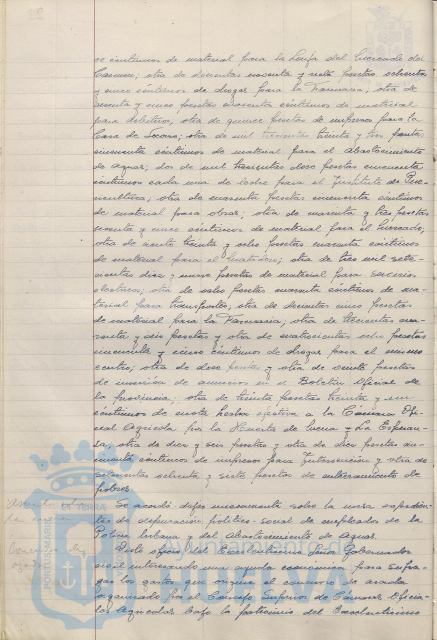 ce céntimos de material para la Lonja del Mercado del
Carmen; otra de doscientas noventa y nueve pesetas ochenta
y cinco céntimos de drogas para la Farmacia, otra de
y cinco pesetas céntimos de material
para otra de quince pesetas de impresos para la
Casa de Socorro; otra de mil trescientas treinta y tres pesetas
cincuenta céntimos de material para el Abastecimiento
de Aguas; dos de mil trescientas doce pesetas cincuenta
céntimos cada una de leche para el Instituto de Pue-
ricultura; otra de pesetas cincuenta céntimos
de material para obras; otra de y tres pesetas
y cinco céntimos de material para el Mercado,
otra de ciento treinta y ocho pesetas céntimos
de material para el Matadero; otra de tres mil sete-
cientas diez y nueve pesetas de material para servicio
eléctrico; otra de ocho pesetas céntimos de ma-
terial para transportes; otra de cinco pesetas
de material para la Farmacia; otra de trescientas cua-
renta y seis pesetas y otra de cuatrocientas ocho pesetas
cincuenta y cinco céntimos de drogas para el mismo
centro; otra de doce pesetas y otra de veinte pesetas
de inserción de anuncios en el Boletín Oficial de
la provincia; otra de treinta pesetas treinta y un
céntimos de cuota hecha efectiva a la Cámara Ofi-
cial Agrícola por la Huerta de y La Esperan-
za, otra de diez y seis pesetas y otra de diez pesetas cin-
cuenta céntimos de impresos para Intervención y otra de
ochenta y siete pesetas de enterramiento de
pobres.
Se acordó dejar nuevamente sobre la mesa expedien-
tes de depuración político-social de empleados de la
Policía Urbana y del Abastecimiento de Aguas.
Visto oficio del Excelentísimo señor Gobernador
civil interesando una ayuda económica para sufra-
gar los gastos que origine el concurso de arada
organizado por el Consejo Superior de Cámaras Oficia-
les Agrícolas bajo el patrocinio del Excelentísimo